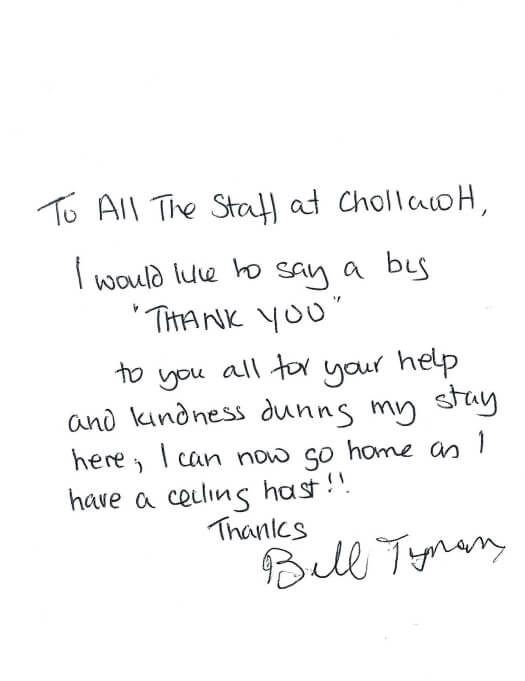 To All The Staff at Chollacott,
I would like to say a big
"THANK YOU"
to you all for your help
and kindness during my stay
here, I can now go home as I
have a ceiling hoist!!
Thanks
Bill Tynan